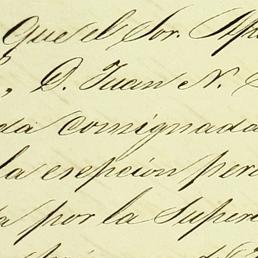 Que el Sor.
, D. Juan N.
da consignada
la esepcion per
por la Super